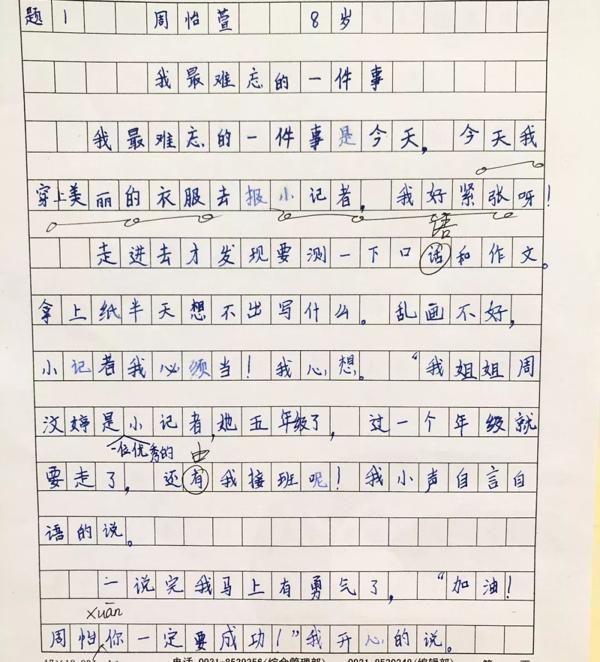 题1 周怡萱 8岁
我最难忘的一件事
我最难忘的一件事是今天,今天我
穿上美丽的衣服去报小记者,我好紧张呀!
语
走进去才发现要测一下口话和作文。
拿上纸半天想不出写什么。乱画不好,
小记者我必须当!我心想。“我姐姐周
汶婷是小记者,她五年级了,过一个年级就
一位优秀的 由
要走了,还有我接班呢!我小声自言自
语的说。
一说完我马上有勇气了,“加油!
xuān
周怡你一定要成功!”我开心的说。